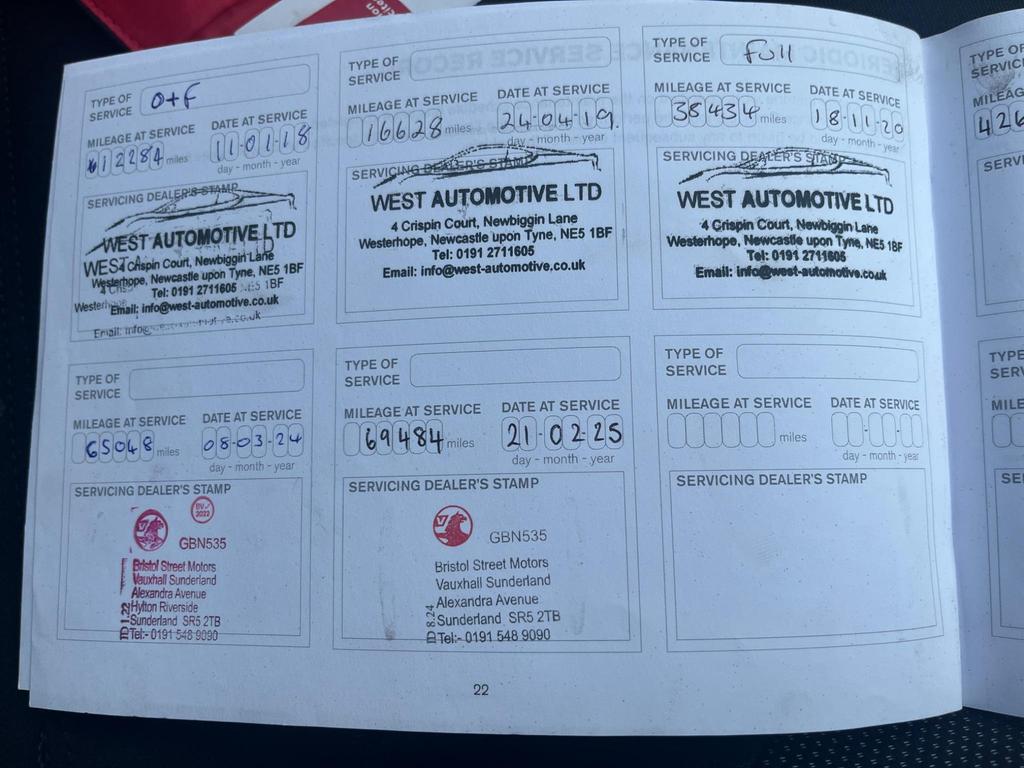 TYPE OF SERVICE O+F
MILEAGE AT SERVICE DATE AT SERVICE
12284 miles 11-01-18
day - month - year
SERVICING DEALER'S STAMP
WEST AUTOMOTIVE LTD
4 Crispin Court, Newbiggin Lane
Westerhope, Newcastle upon Tyne, NE5 1BF
Tel: 0191 2711605
Email: info@west-automotive.co.uk
TYPE OF SERVICE
MILEAGE AT SERVICE DATE AT SERVICE
16628 miles 24-04-19
day - month - year
SERVICING DEALER'S STAMP
WEST AUTOMOTIVE LTD
4 Crispin Court, Newbiggin Lane
Westerhope, Newcastle upon Tyne, NE5 1BF
Tel: 0191 2711605
Email: info@west-automotive.co.uk
TYPE OF SERVICE Full
MILEAGE AT SERVICE DATE AT SERVICE
38434 miles 18-11-20
day - month - year
SERVICING DEALER'S STAMP
WEST AUTOMOTIVE LTD
4 Crispin Court, Newbiggin Lane
Westerhope, Newcastle upon Tyne, NE5 1BF
Tel: 0191 2711605
Email: info@west-automotive.co.uk
TYPE OF SERVICE
MILEAGE AT SERVICE DATE AT SERVICE
65048 miles 08-03-24
day - month - year
SERVICING DEALER'S STAMP
GBN535
Bristol Street Motors
Vauxhall Sunderland
Alexandra Avenue
Hylton Riverside
Sunderland SR5 2TB
Tel:- 0191 548 9090
TD 1.22
TYPE OF SERVICE
MILEAGE AT SERVICE DATE AT SERVICE
69484 miles 21-02-25
day - month - year
SERVICING DEALER'S STAMP
GBN535
Bristol Street Motors
Vauxhall Sunderland
Alexandra Avenue
Sunderland SR5 2TB
Tel:- 0191 548 9090
TD 8.24
TYPE OF SERVICE
MILEAGE AT SERVICE DATE AT SERVICE
miles
day - month - year
SERVICING DEALER'S STAMP
22
TYPE OF